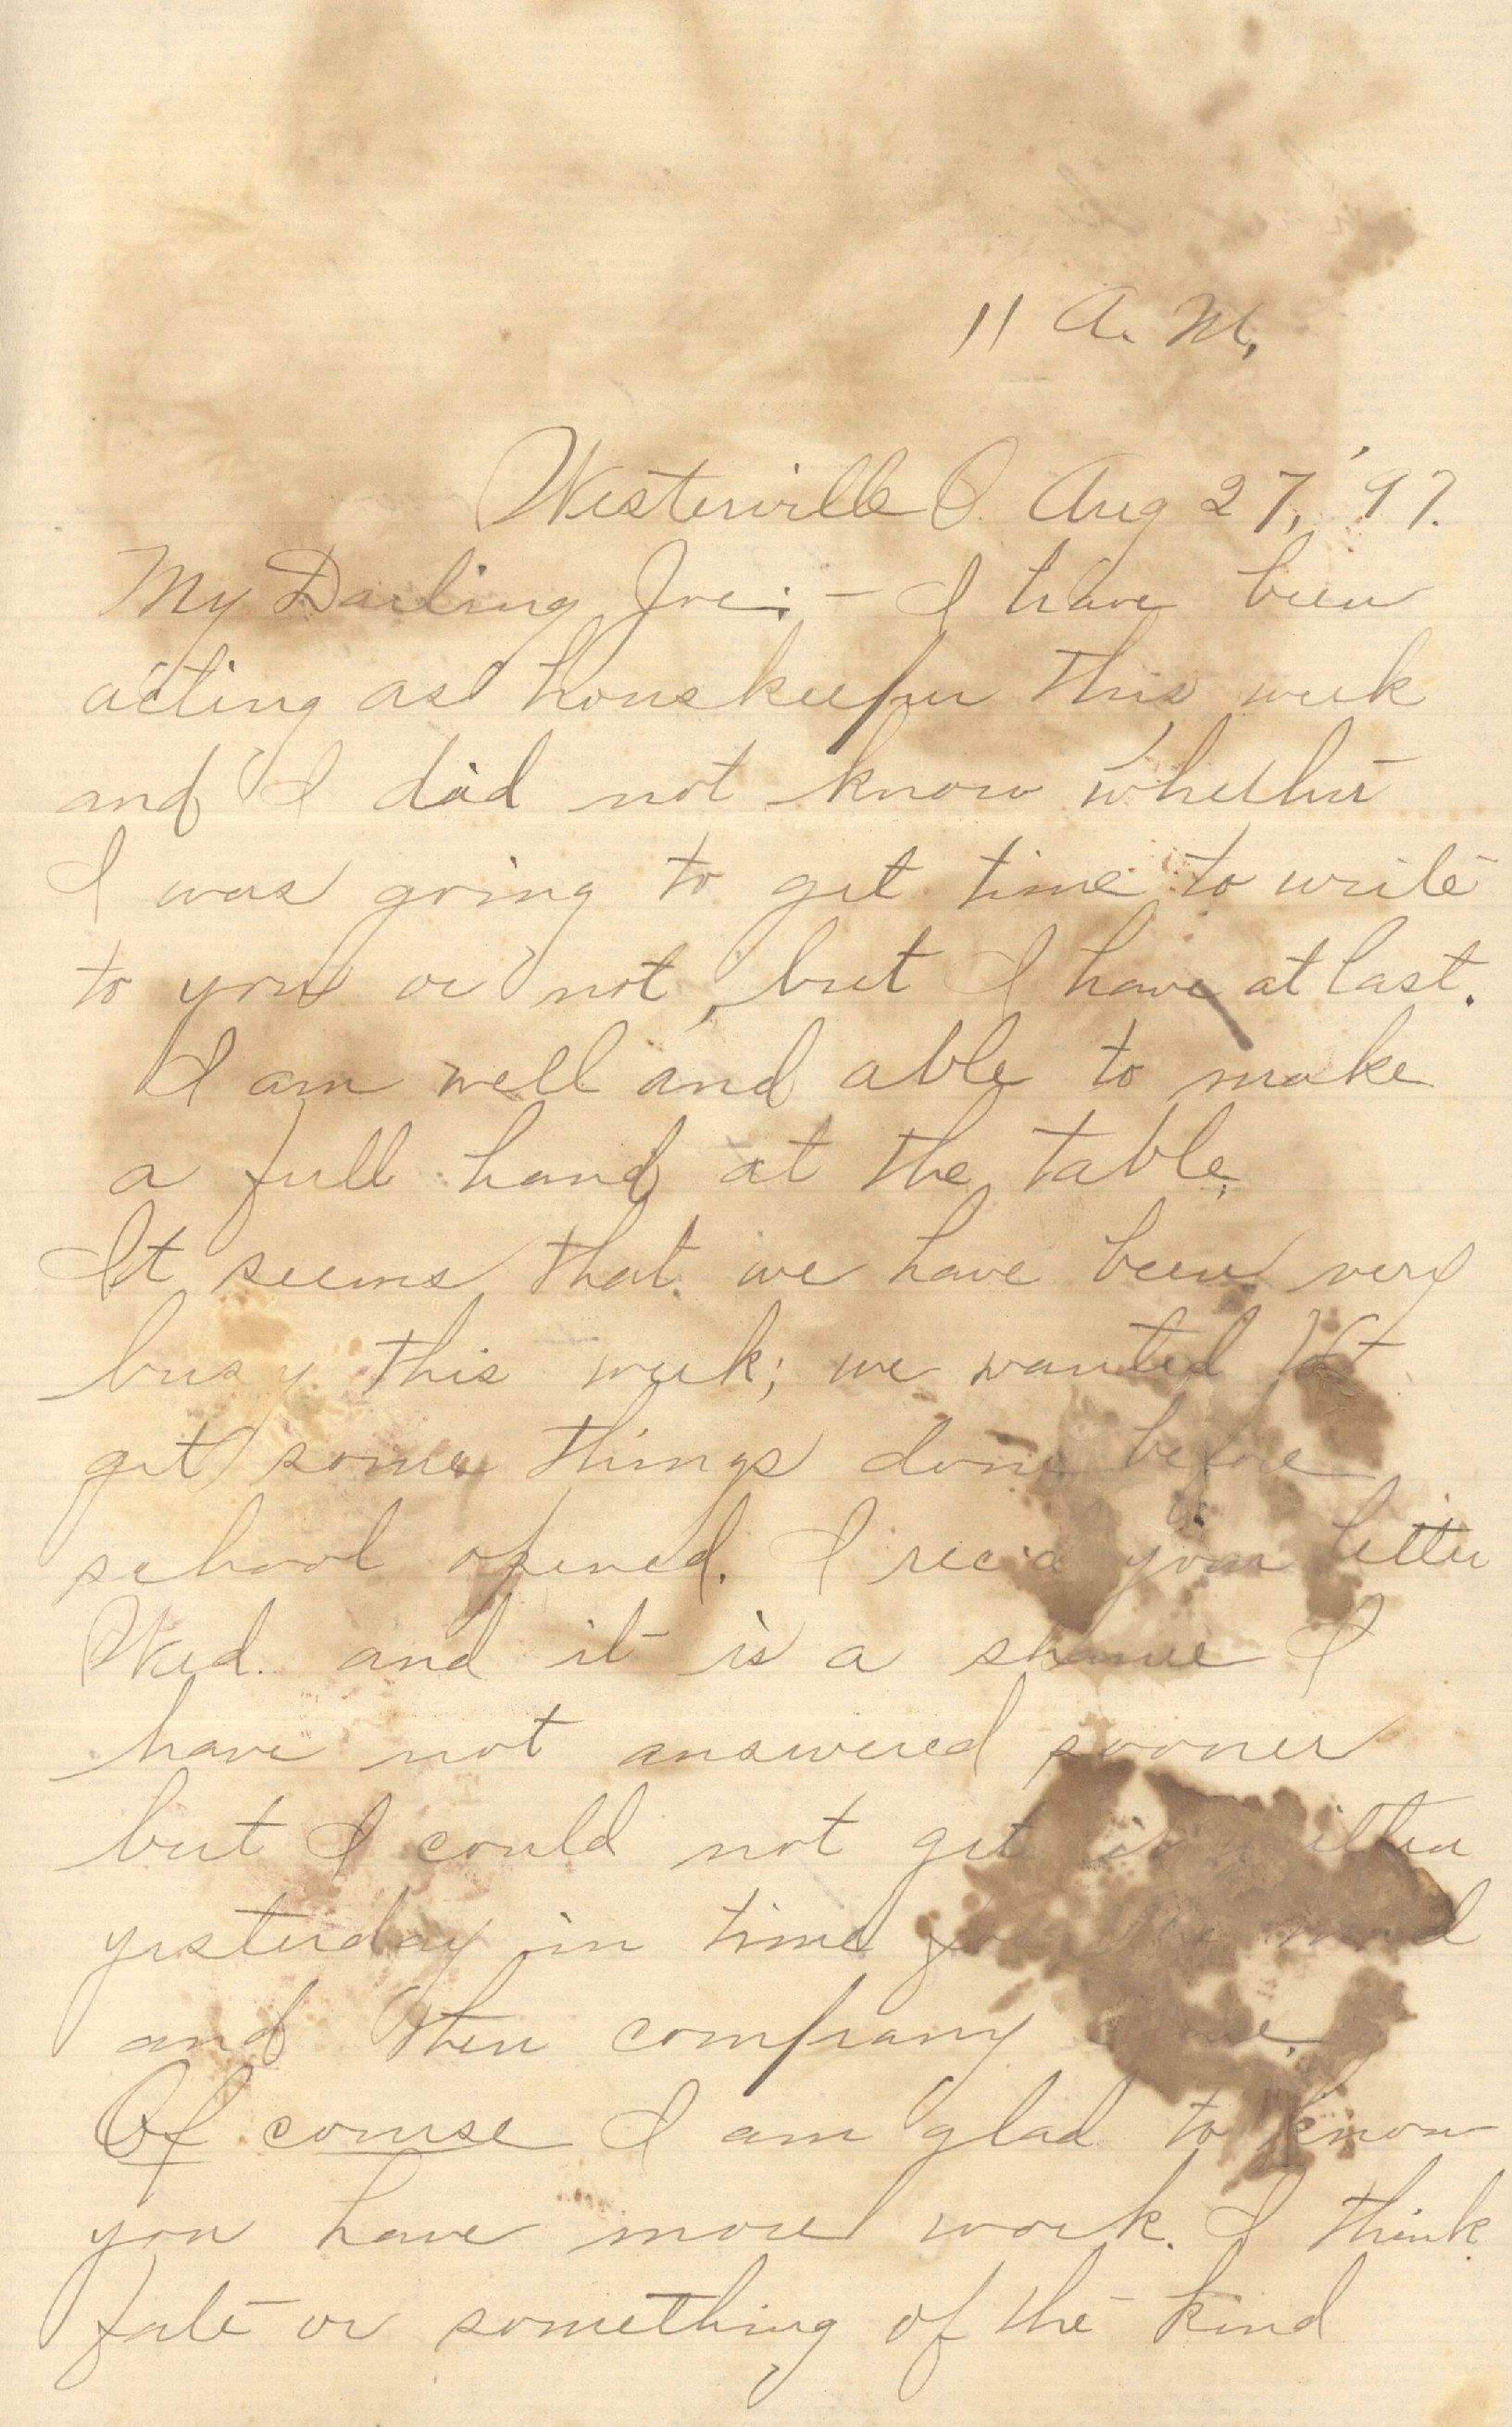 11 A. M.
Westerville O. Aug 27, '97.
My Darling Joe:- I have been
acting as houskeeper this week
and I did not know whether
I was going to get time to write
to you or not, but I have at last.
I am well and able to make
a full hand at the table.
It seems that we have been very
busy this week; we wanted to
get some things done before
school opened. I rec'd your letter
Wed. and it is a shame I
have not answered sooner
but I could not get it written
yesterday in time for the mail
and then company came.
Of course I am glad to know
you have more work. I think
fate or something of the kind